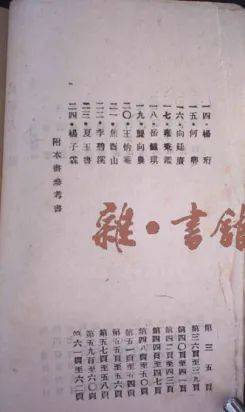 一四·楊 珩 第三五頁
一五·何 第三六頁至三九頁
一六·向廷賡 第四〇頁至四一頁
一七· 第四二頁至四三頁
一八·岳 琪 第四四頁至四七頁
一九·龔向農 第四八頁至五〇頁
二〇·王怡菴 第五一頁至五四頁
二一·焦 山 第五五頁至五六頁
二二·李碧溪 第五七頁至五八頁
二三·夏玉書 第五九頁至六〇頁
二四·楊子霖 第六一頁至六二頁
附本書參考書
雜·書館